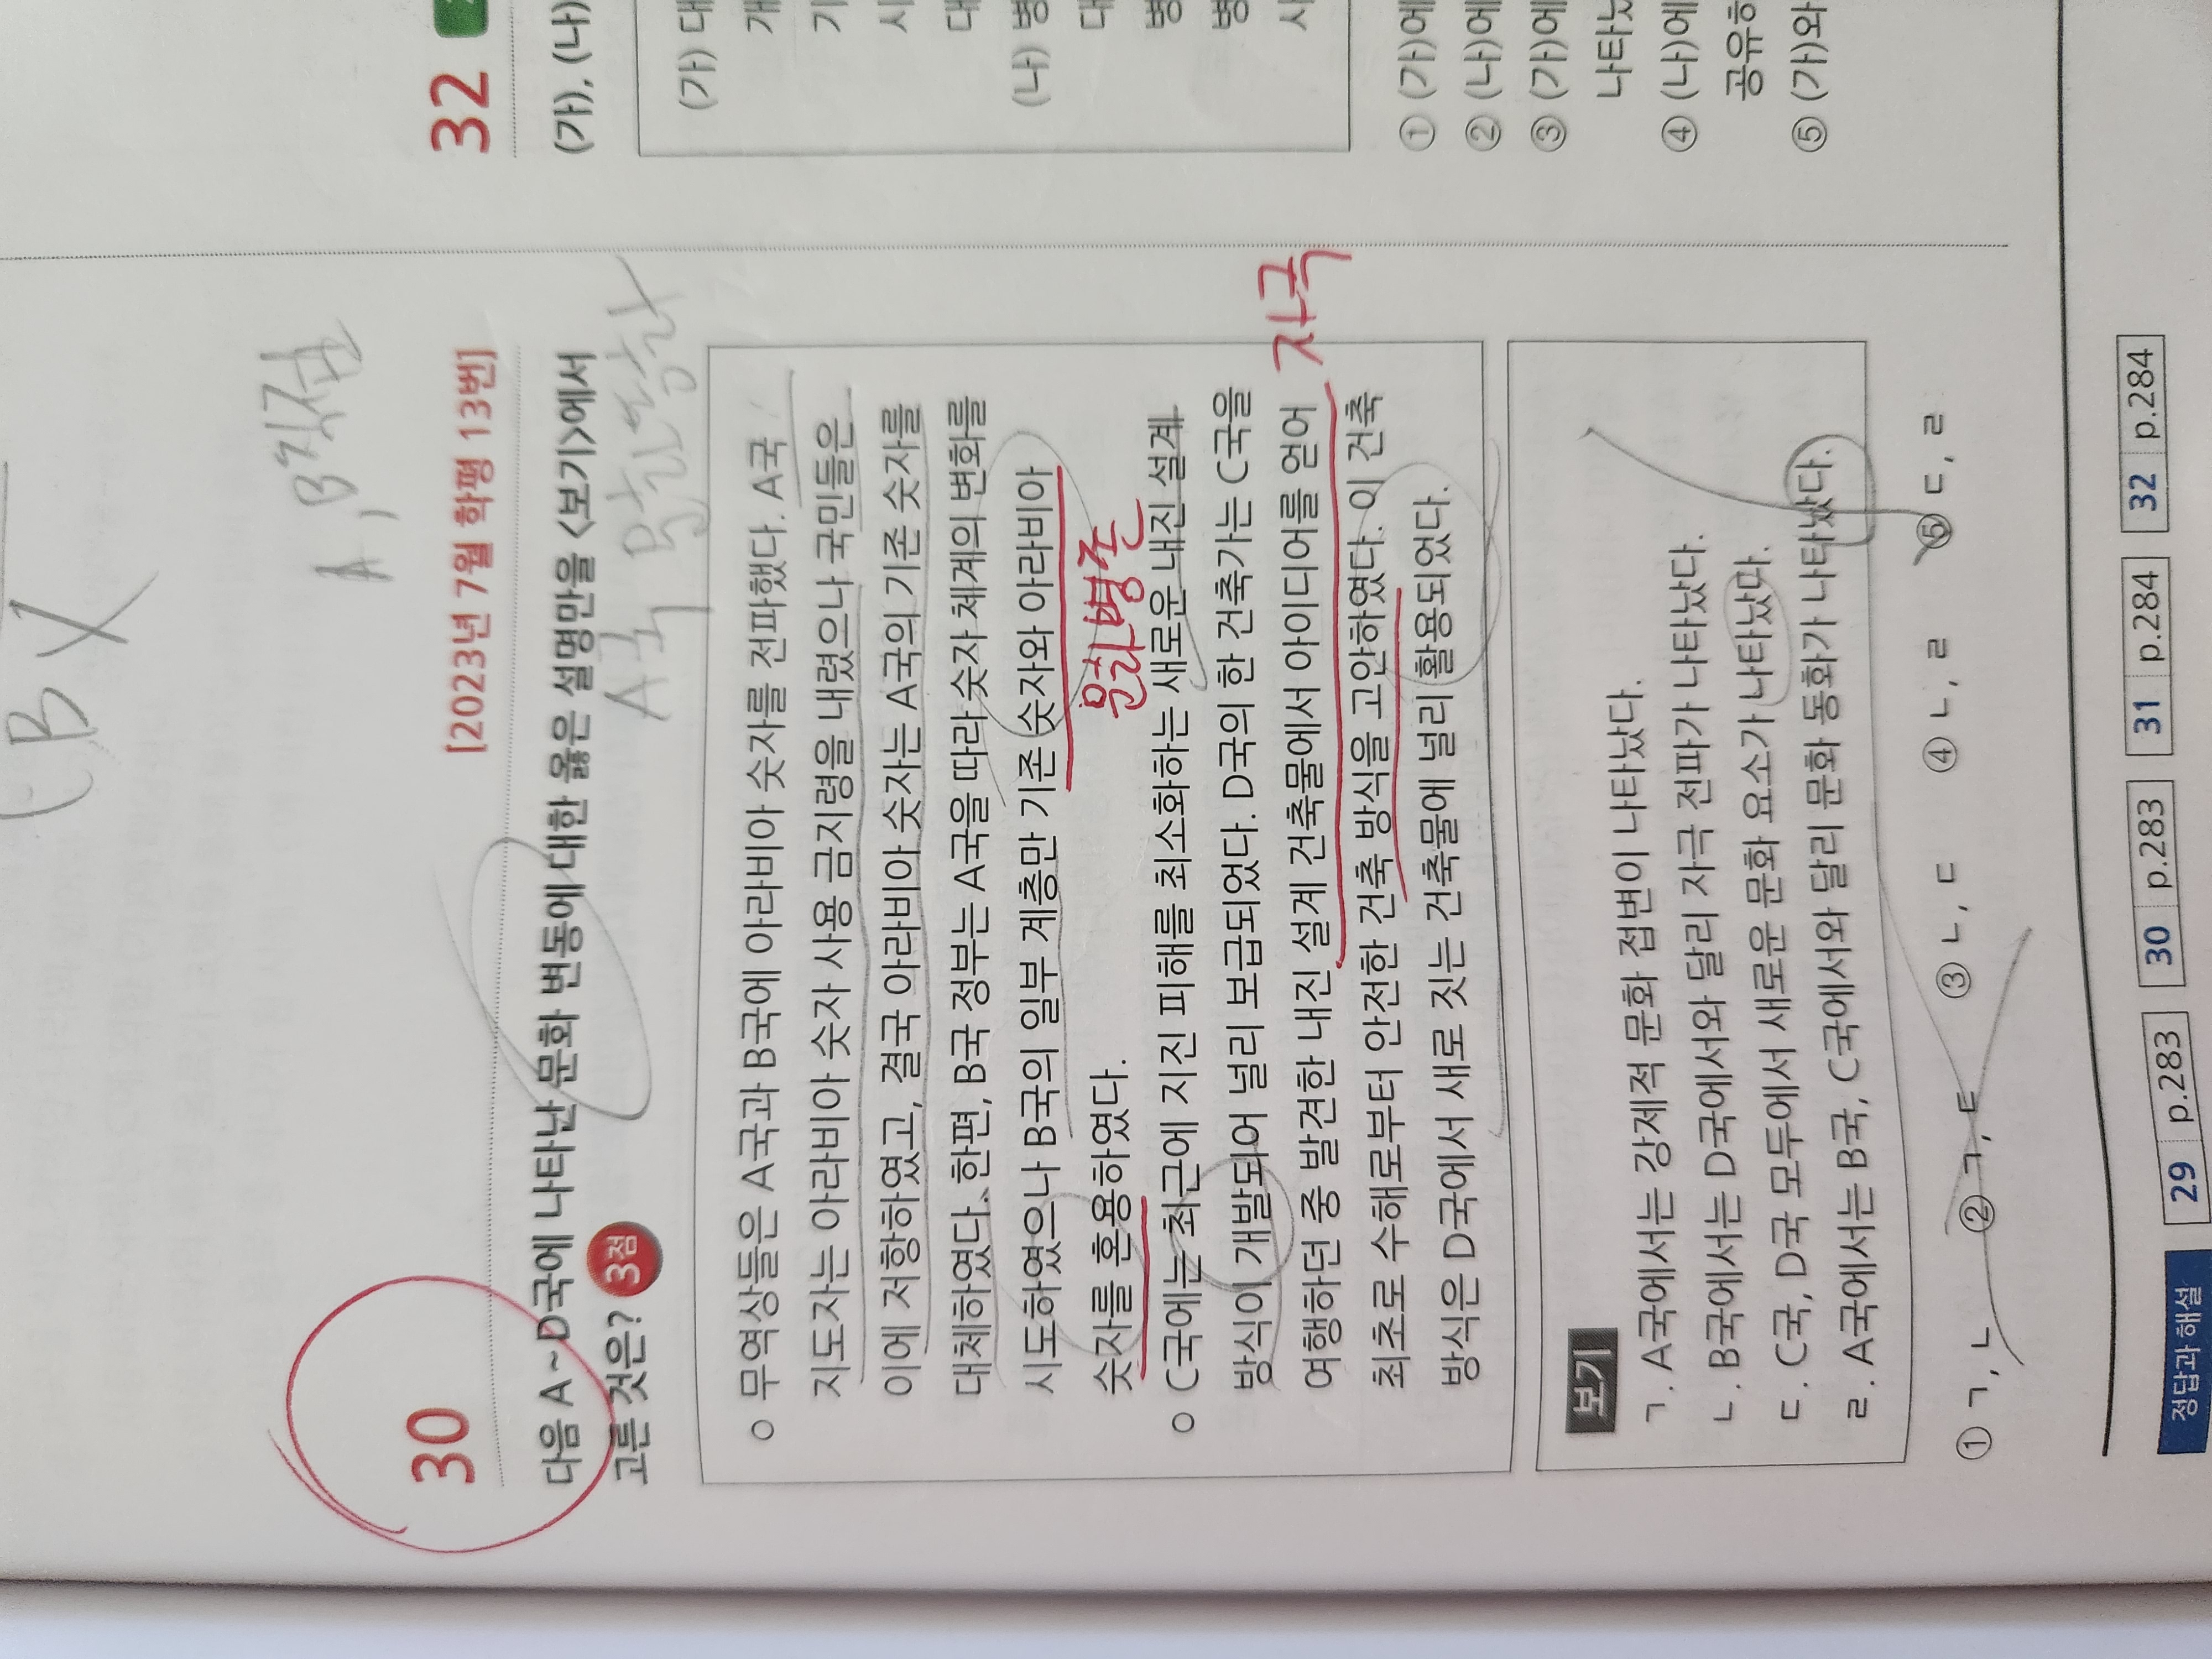 B X
A, B 직접
30
[2023년 7월 학평 13번]
다음 A ~ D국에 나타난 문화 변동에 대한 옳은 설명만을 <보기>에서
고른 것은? 3점
A국
○ 무역상들은 A국과 B국에 아라비아 숫자를 전파했다. A국
지도자는 아라비아 숫자 사용 금지령을 내렸으나 국민들은
이에 저항하였고, 결국 아라비아 숫자는 A국의 기존 숫자를
대체하였다. 한편, B국 정부는 A국을 따라 숫자 체계의 변화를
시도하였으나 B국의 일부 계층만 기존 숫자와 아라비아
숫자를 혼용하였다.
문화병존
○ C국에는 최근에 지진 피해를 최소화하는 새로운 내진 설계
방식이 개발되어 널리 보급되었다. D국의 한 건축가는 C국을
여행하던 중 발견한 내진 설계 건축물에서 아이디어를 얻어
자극
최초로 수해로부터 안전한 건축 방식을 고안하였다. 이 건축
방식은 D국에서 새로 짓는 건축물에 널리 활용되었다.
보기
ㄱ. A국에서는 강제적 문화 접변이 나타났다.
ㄴ. B국에서는 D국에서와 달리 자극 전파가 나타났다.
ㄷ. C국, D국 모두에서 새로운 문화 요소가 나타났다.
ㄹ. A국에서는 B국, C국에서와 달리 문화 동화가 나타났다.
① ㄱ, ㄴ ② ㄱ, ㄷ ③ ㄴ, ㄷ ④ ㄴ, ㄹ ⑤ ㄷ, ㄹ
정답과 해설 29 p.283 30 p.283 31 p.284 32 p.284
32
(가), (나)
(가) 대
개
기
시
대
(나) 병
대
병
병
시
① (가)에
② (나)에
③ (가)에
나타났
④ (나)에
공유하
⑤ (가)와